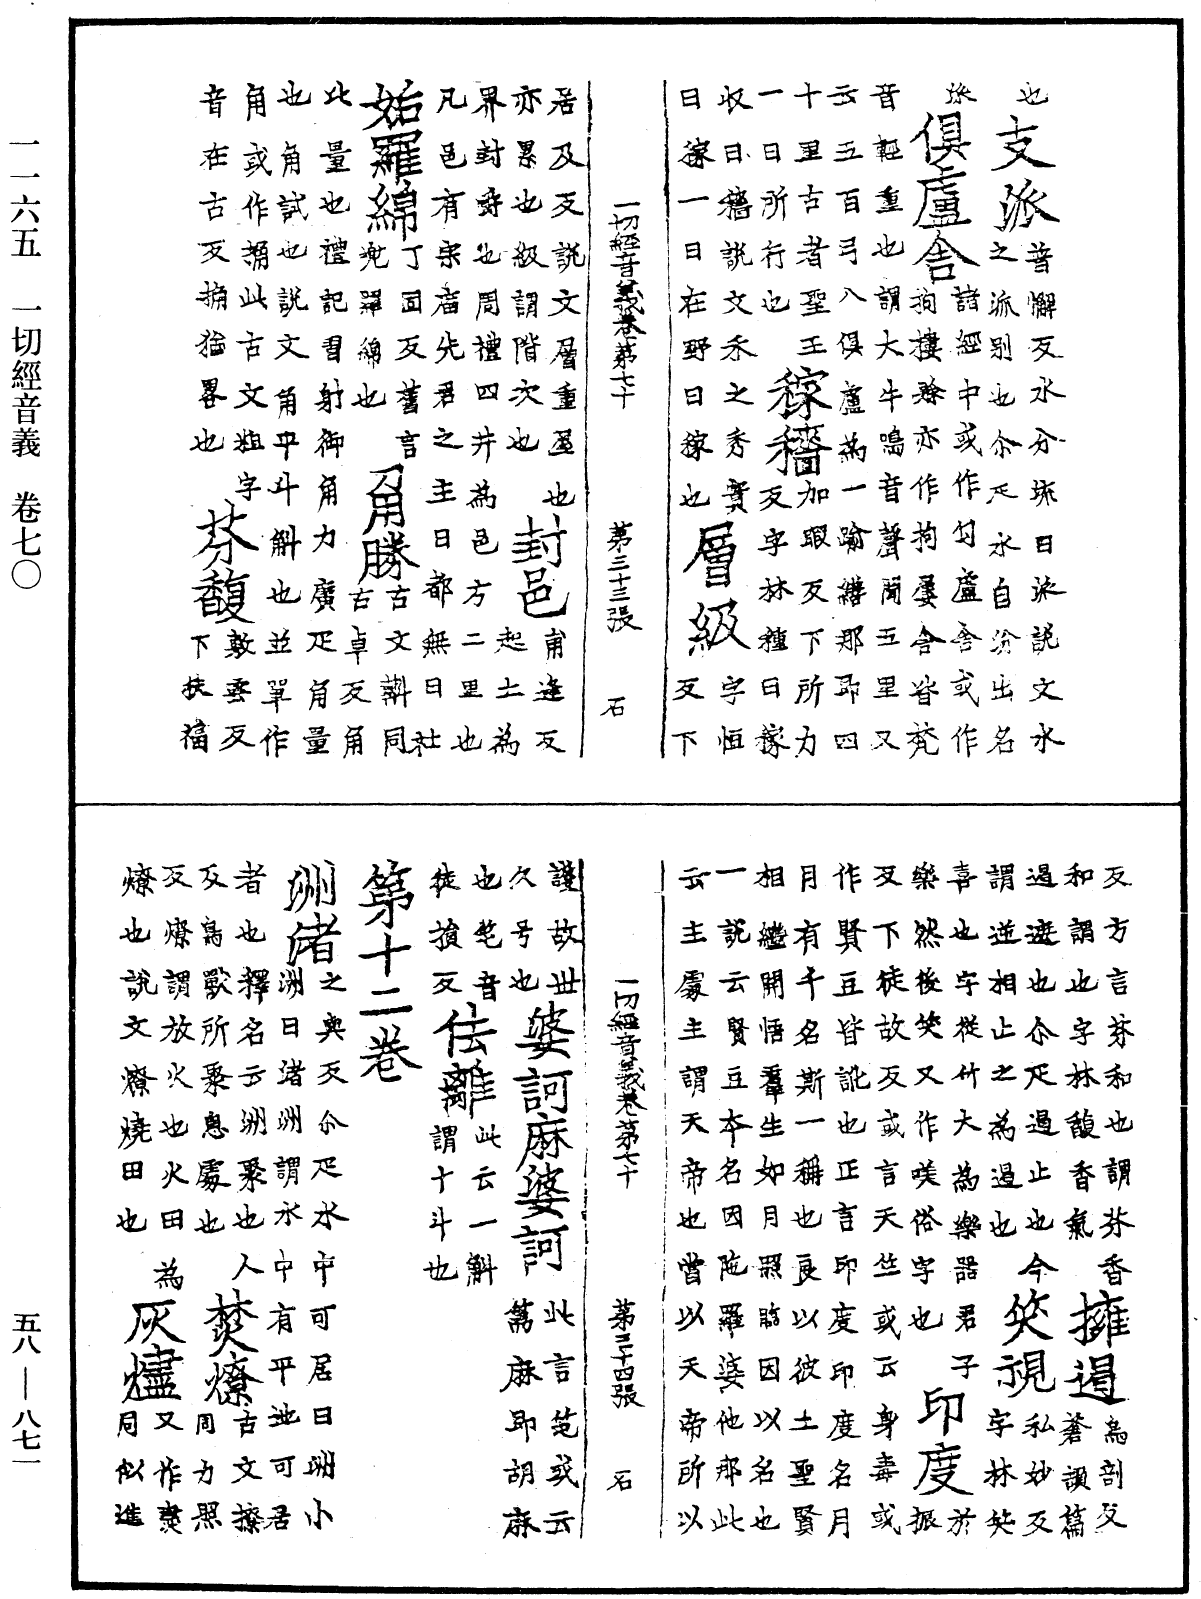 也支派普懈反水分流曰派說文水
之派別也尒疋水自汾出名
派俱盧舍諸經中或作句盧舍或作
拘樓賒亦作拘屢舍皆梵
音輕重也謂大牛鳴音聲聞五里又
云五百弓八俱盧為一踰繕那即四
十里古者聖王
一日所行也稼穡加暇反下所力
反字林種曰稼
收曰穡說文禾之秀實
曰稼一曰在野曰稼也層級字恒
反下
一切經音義卷第七十 第三十三張 石
居及反說文層重屋也
亦累也級謂階次也封邑甫逢反
起土為
界封爵也周禮四井為邑方二里也
凡邑有宗廟先君之主曰都無曰社
妬羅綿丁固反舊言
兜羅綿也捔勝古文斠同
古卓反角
此量也禮記習射御角力廣疋角量
也角試也說文角平斗斛也並單作
角或作捔此古文粗字
音在古反捔猶畧也芬馥敷雲反
下扶福
反方言芬和也謂芬香
和謂也字林馥香氣擁遏烏剖反
蒼頡篇
遏遮也尒疋遏止也今
謂逆相止之為遏也笑視私妙反
字林笑
喜也字從竹大為樂器君子
樂然後笑又作咲俗字也印度於
振
反下徒故反或言天竺或云身毒或
作賢豆皆訛也正言印度印度名月
月有千名斯一稱也良以彼土聖賢
相繼開悟羣生如月照臨因以名也
一說云賢豆本名因陁羅婆他那此
云主處主謂天帝也當以天帝所以
一切經音義卷第七十 第三十四張 石
護故世
久号也婆訶麻婆訶此言笔或云
篅麻即胡麻
也笔音
徒損反佉離此云一斛
謂十斗也
第十二卷
洲渚之與反尒疋水中可居曰洲小
洲曰渚洲謂水中有平地可居
者也釋名云洲聚也人
及鳥獸所聚息處也焚燎古文
同力照
反燎謂放火也火田為
燎也說文燎燒田也灰燼又作
同似進
一一六五 一切經音義 卷七〇
五八—八七一